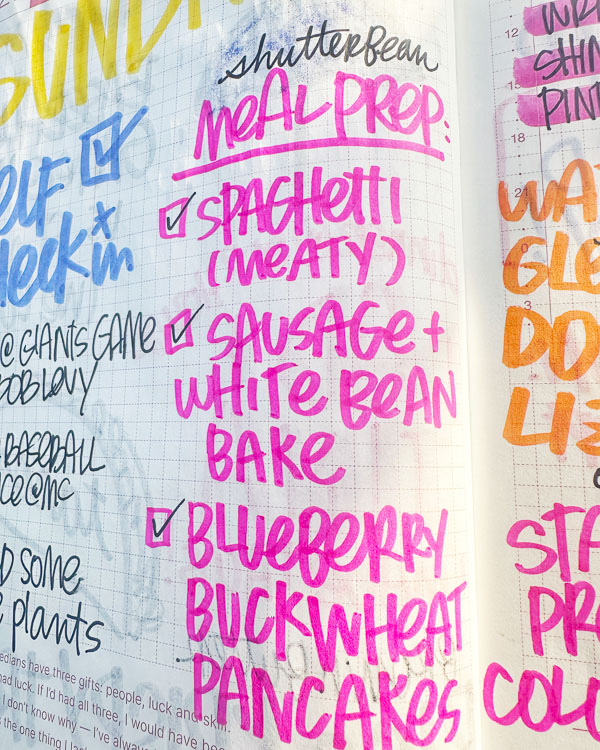 SUNDA
shutterbean
MEAL PREP:
SPAGHETTI
(MEATY)
SAUSAGE +
WHITE BEAN
BAKE
BLUEBERRY
BUCKWHEAT
PANCAKES
ELF
heck in
@ GIANTS GAME
BOB LEVY
BASEBALL
CE@MC
D SOME
plants
edians have three gifts: people, luck and skill.
had luck. If I'd had all three, I would have be
I don't know why — I've always
the one thing I la
12
15
18
21
0
3
WR
SHIN
PIN
WA
GLE
DO
LIZ
STA
PR
COL